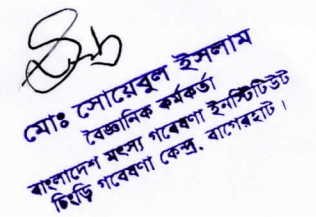 মোঃ সোয়েবুল ইসলাম
বৈজ্ঞানিক কর্মকর্তা
বাংলাদেশ মৎস্য গবেষণা ইনস্টিটিউট
চিংড়ি গবেষণা কেন্দ্র, বাগেরহাট।